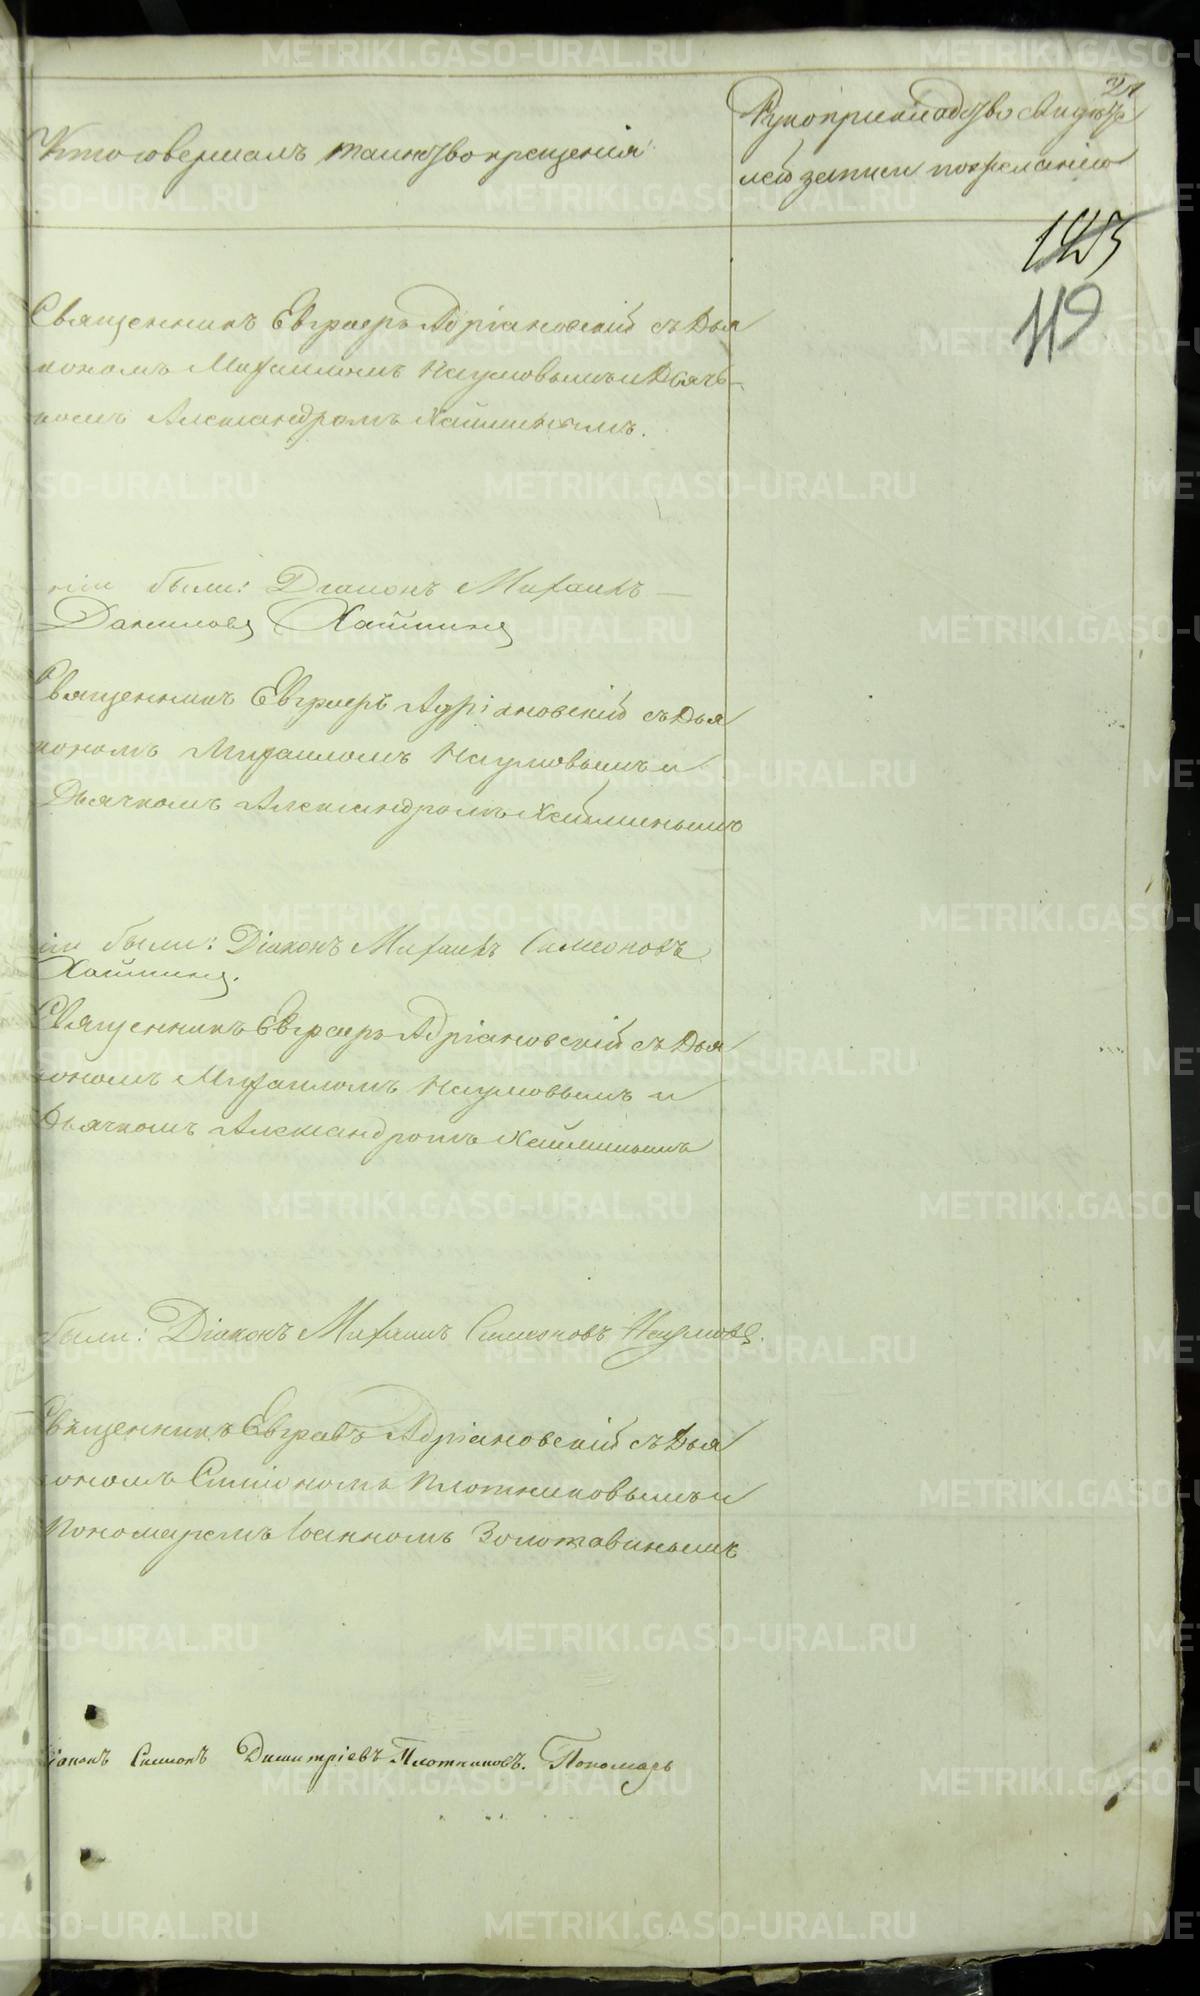 Кто совершалъ таинство крещенія.
Рукоприкладство свидѣте
лей записи по желанію
21
125
119
Священникъ Евграфъ Адріановскій съ Дья
кономъ Михаиломъ Наумовымъ и Дьяч-
комъ Александромъ Хайминымъ.
ніи были: Діаконъ Михаилъ —
Данилова Хаймина
Священникъ Евграфъ Адріановскій съ Дья
кономъ Михаиломъ Наумовымъ и
Дьячкомъ Александромъ Хайминымъ
іи были: Діаконъ Михаилъ Симеоновъ
Хаймина.
Священникъ Евграфъ Адріановскій съ Дья
кономъ Михаиломъ Наумовымъ и
Дьячкомъ Александромъ Хайминымъ
были: Діаконъ Михаилъ Симеоновъ Наумовъ.
Священникъ Евграфъ Адріановскій съ Дья
кономъ Симономъ Плотниковымъ и
Пономаремъ Іоанномъ Золотавинымъ
іаконъ Симонъ Димитріевъ Плотниковъ. Пономарь
METRIKI.GASO-URAL.RU